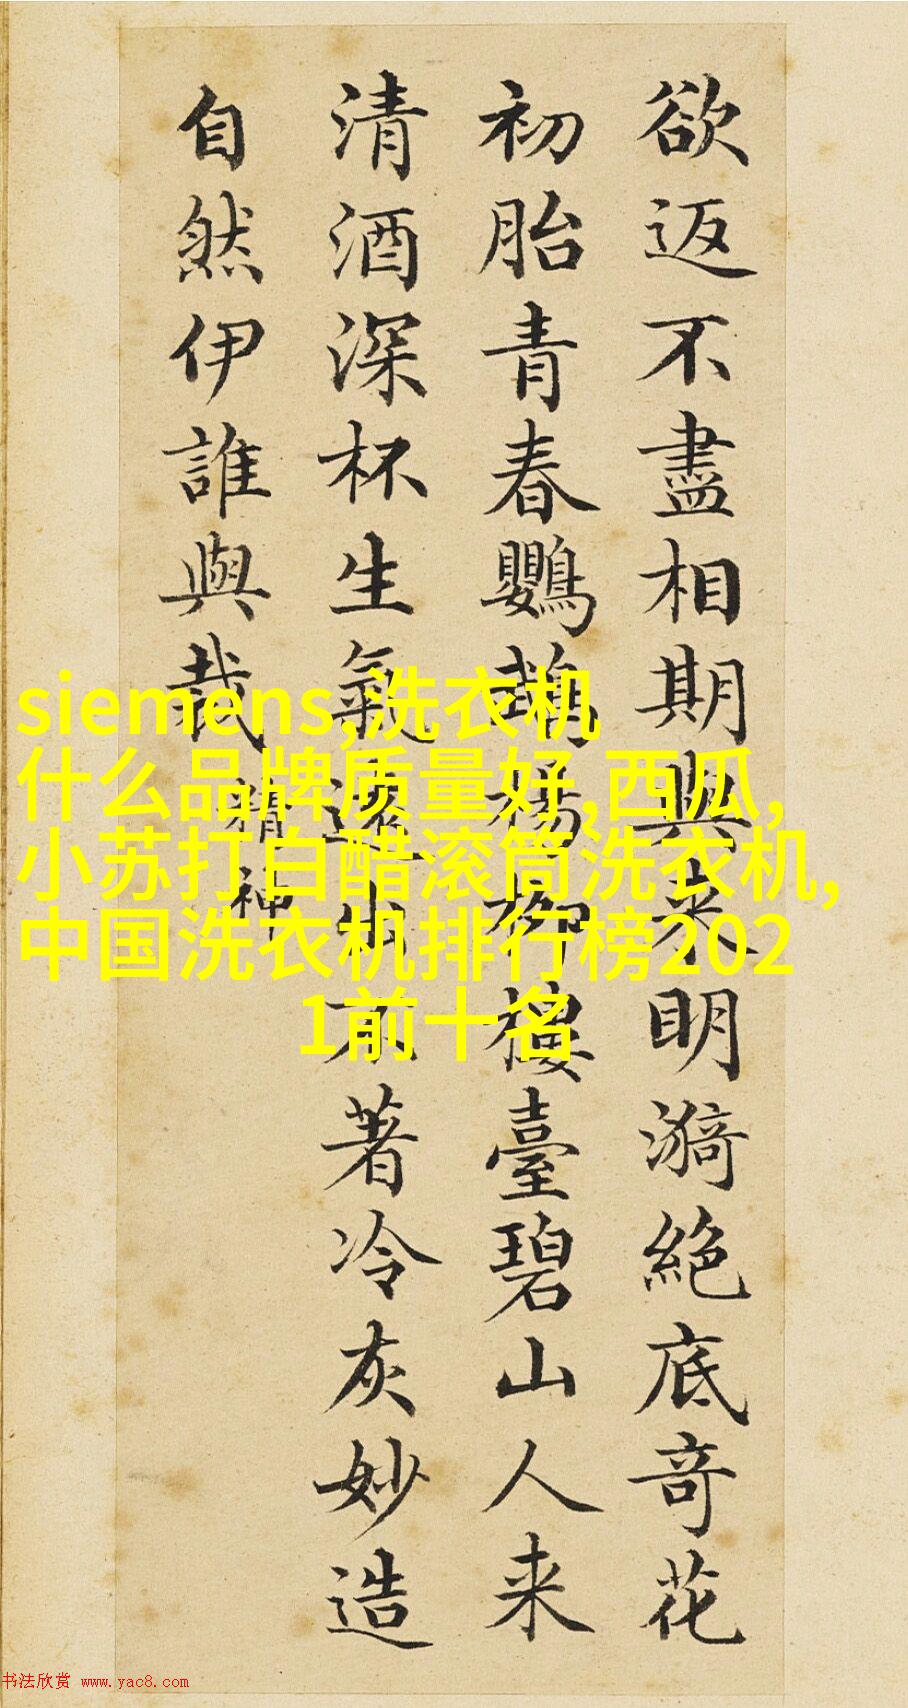 欲返不盡相期與来明漪絶底奇花
初胎青春鸚鵡楊柳樓臺碧山人来
清酒深杯生氣遠出不著冷灰妙造
自然伊誰與裁
精神
siemens,洗衣机
什么品牌质量好,西瓜,
小苏打白醋滚筒洗衣机,
中国洗衣机排行榜202
1前十名
书法欣赏 www.yac8.com